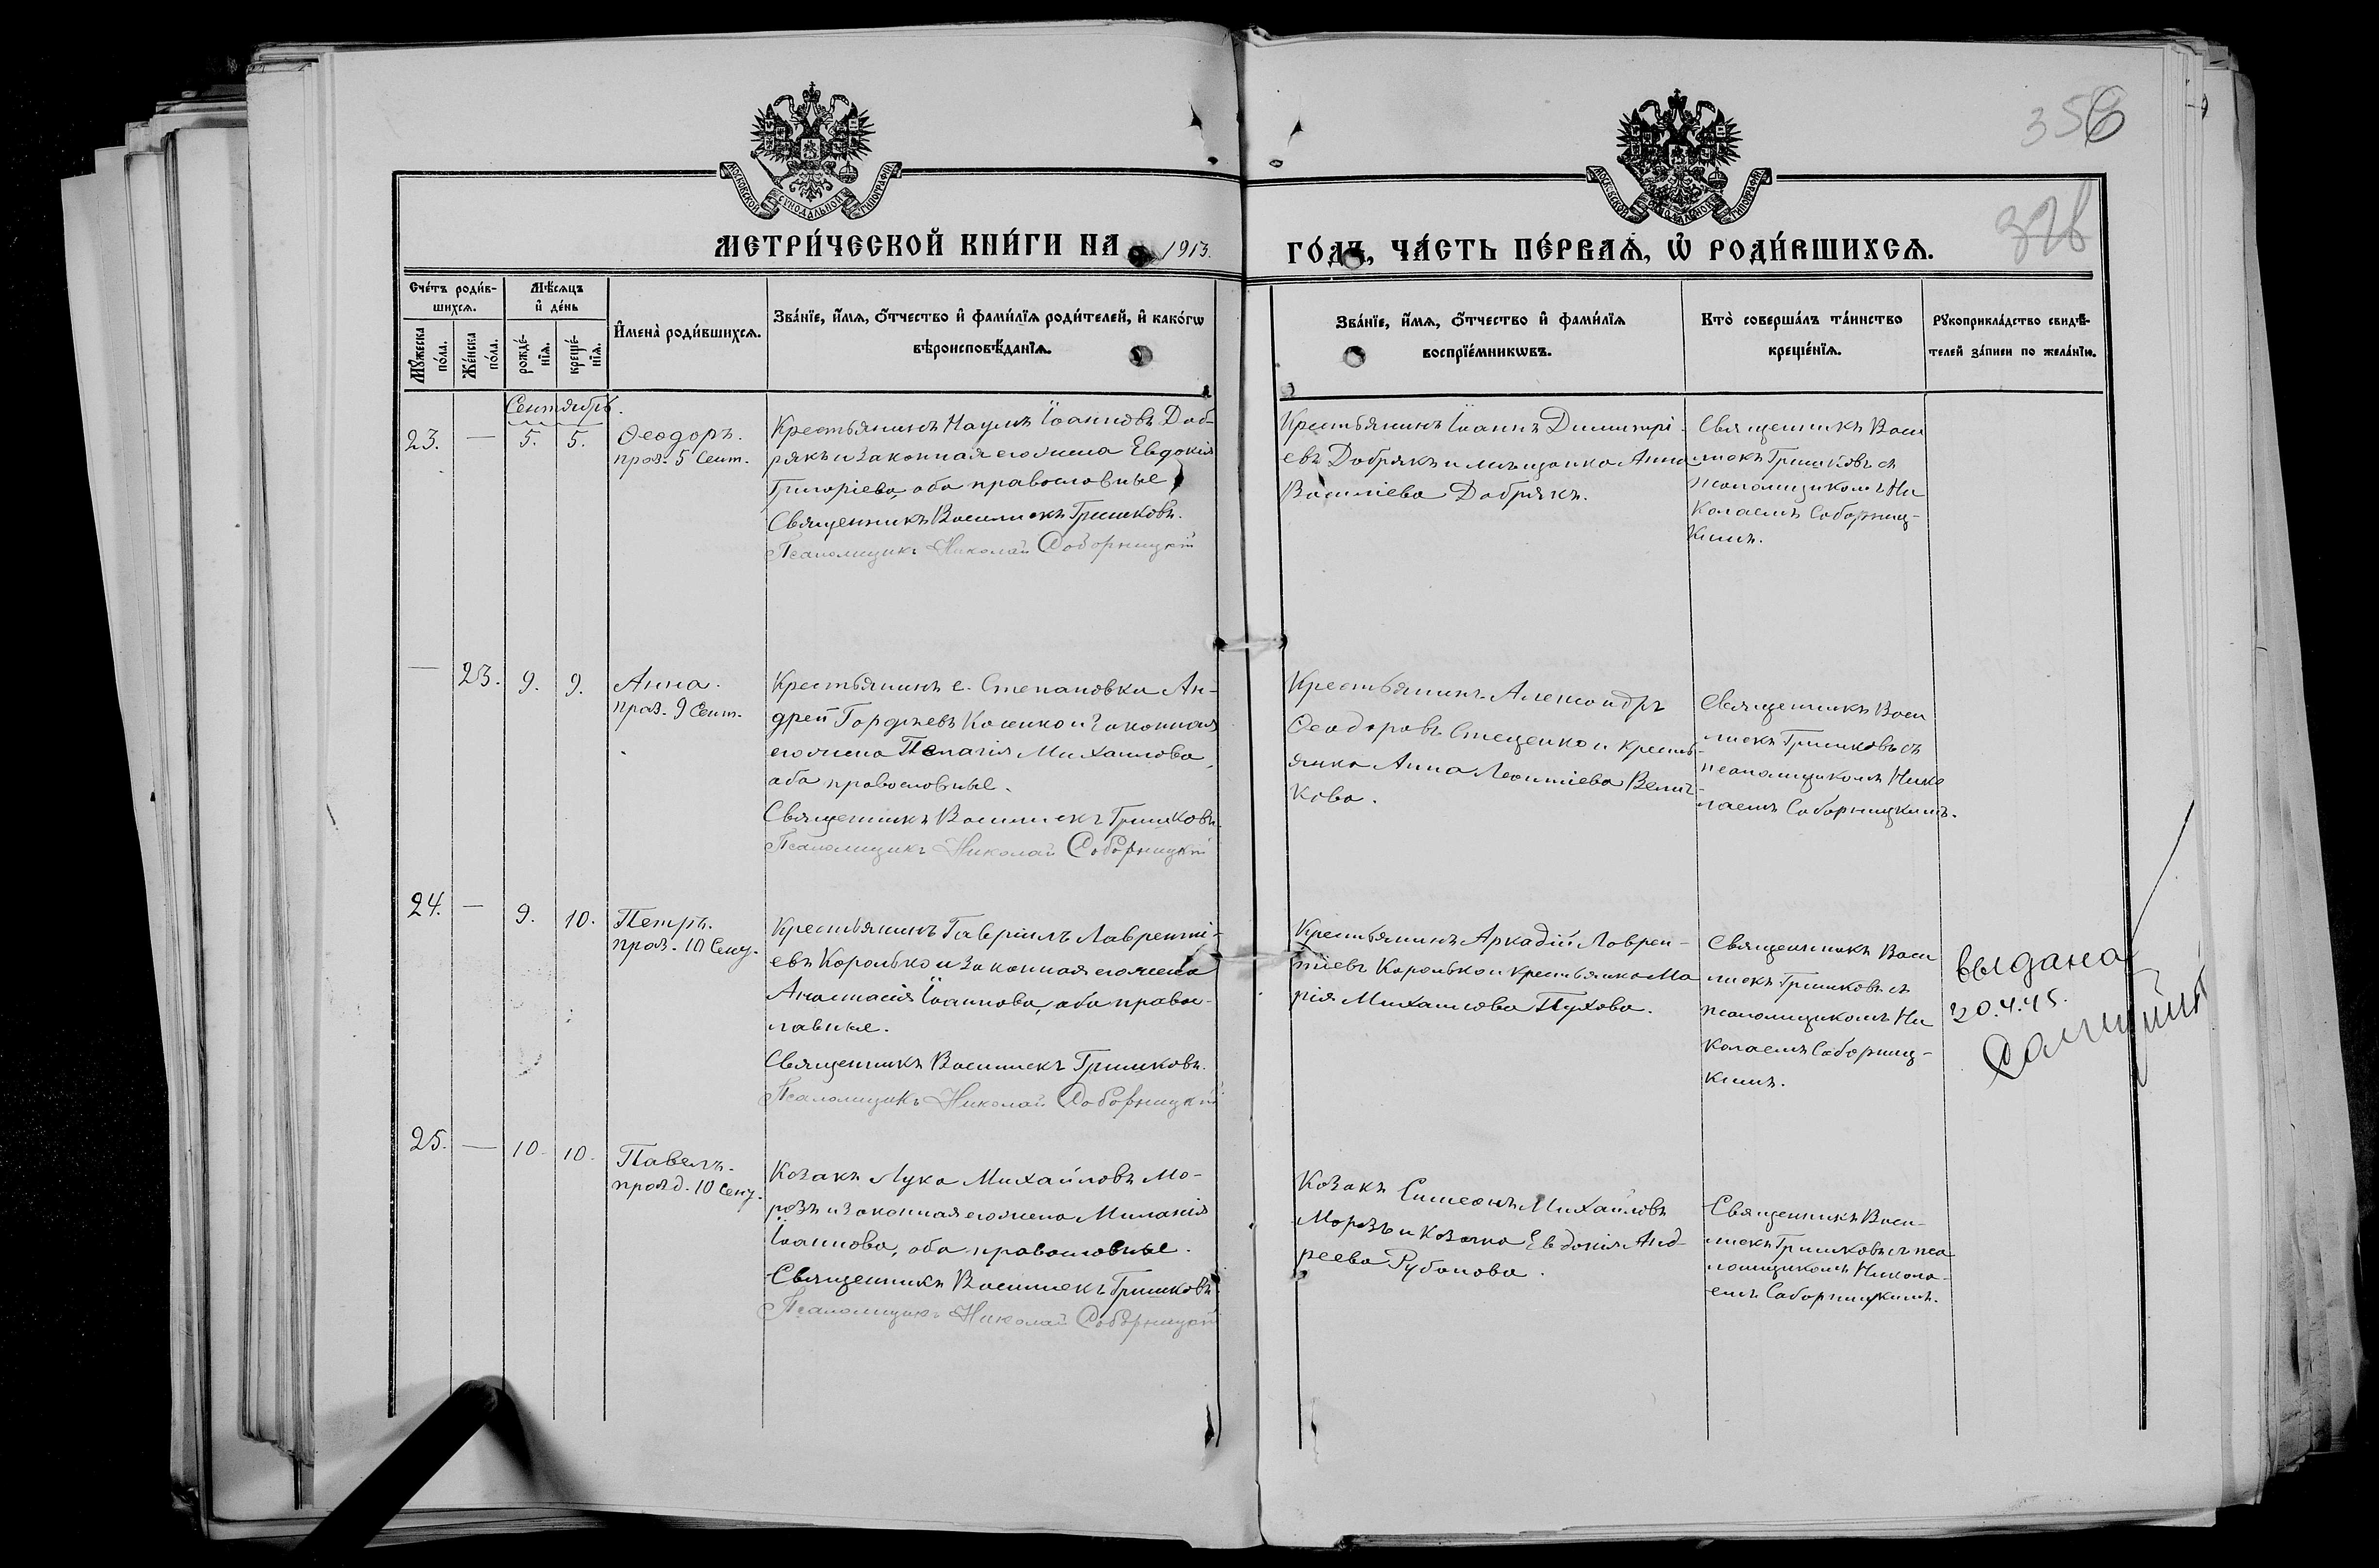 356
376
МОСКОВСКОЙ СѴНОДАЛЬНОЙ ТИПОГРАФІИ
МОСКОВСКОЙ СѴНОДАЛЬНОЙ ТИПОГРАФІИ
МЕТРИ́ЧЕСКОЙ КНИ́ГИ НА 1913. ГО́ДЪ, ЧА́СТЬ ПЕ́РВАѦ, Ѡ҆ РОДИ́ВШИХСѦ.
Сче́тъ роди́в-
шихсѧ.
Мꙋ́жеска
по́ла.
Же́нска
по́ла.
Мѣ́сѧцъ
и҆ де́нь
рожде́-
нїѧ.
креще́-
нїѧ.
И҆мена̀ роди́вшихсѧ.
Зва́нїе, и҆́мѧ, ѻ҆́тчество и҆ фами́лїѧ роди́телей, и҆ како́гѡ
вѣроисповѣ́данїѧ.
Зва́нїе, и҆́мѧ, ѻ҆́тчество и҆ фами́лїѧ
воспрїе́мникѡвъ.
Кто̀ соверша́лъ та́инство
креще́нїѧ.
Рꙋкоприкла́дство свидѣ́-
телей за́писи по жела́нїю.
Сентябрь.
23. — 5. 5.
Ѳеодоръ.
праз. 5 Сент.
Крестьянинъ Наумъ Іоанновъ Доб-
рякъ и законная его жена Евдокія
Григоріева, оба православные
Священникъ Василискъ Гришковъ.
Псаломщикъ Николай Соборницкій
Крестьянинъ Іоаннъ Димитрі-
евъ Добрякъ и мещанка Анна
Василіева Добрякъ.
Священникъ Васи
лискъ Гришковъ съ
псаломщикомъ Ни
колаемъ Соборниц-
кимъ.
— 23. 9. 9.
Анна.
праз. 9 Сент.
Крестьянинъ с. Степановки Ан-
дрей Гордѣевъ Косенко и законная
его жена Пелагія Михаилова,
оба православные.
Священникъ Василискъ Гришковъ.
Псаломщикъ Николай Соборницкій
Крестьянинъ Александръ
Ѳеодоровъ Стеценко и кресть-
янка Анна Леонтіева Велич-
кова.
Священникъ Васи
лискъ Гришковъ съ
псаломщикомъ Нико
лаемъ Соборницкимъ.
24. — 9. 10.
Петръ.
праз. 10 Сент.
Крестьянинъ Гавріилъ Лавренті-
евъ Королько и законная его жена
Анастасія Іоаннова, оба правос-
лавные.
Священникъ Василискъ Гришковъ.
Псаломщикъ Николай Соборницкій
Крестьянинъ Аркадій Лаврен-
тіевъ Королько и крестьянка Ма
рія Михаилова Пухова.
Священникъ Васи
лискъ Гришковъ съ
псаломщикомъ Ни
колаемъ Соборниц-
кимъ.
выдана
20.4.45.
25. — 10. 10.
Павелъ.
празд. 10 Сент.
Козакъ Лука Михайловъ Мо-
розъ и законная его жена Миланія
Іоаннова, оба православные.
Священникъ Василискъ Гришковъ
Псаломщикъ Николай Соборницкій
Козакъ Симеонъ Михайловъ
Морозъ и Козачка Евдокія Анд-
реева Рубанова.
Священникъ Васи-
лискъ Гришковъ съ пса
ломщикомъ Никола-
емъ Соборницкимъ.